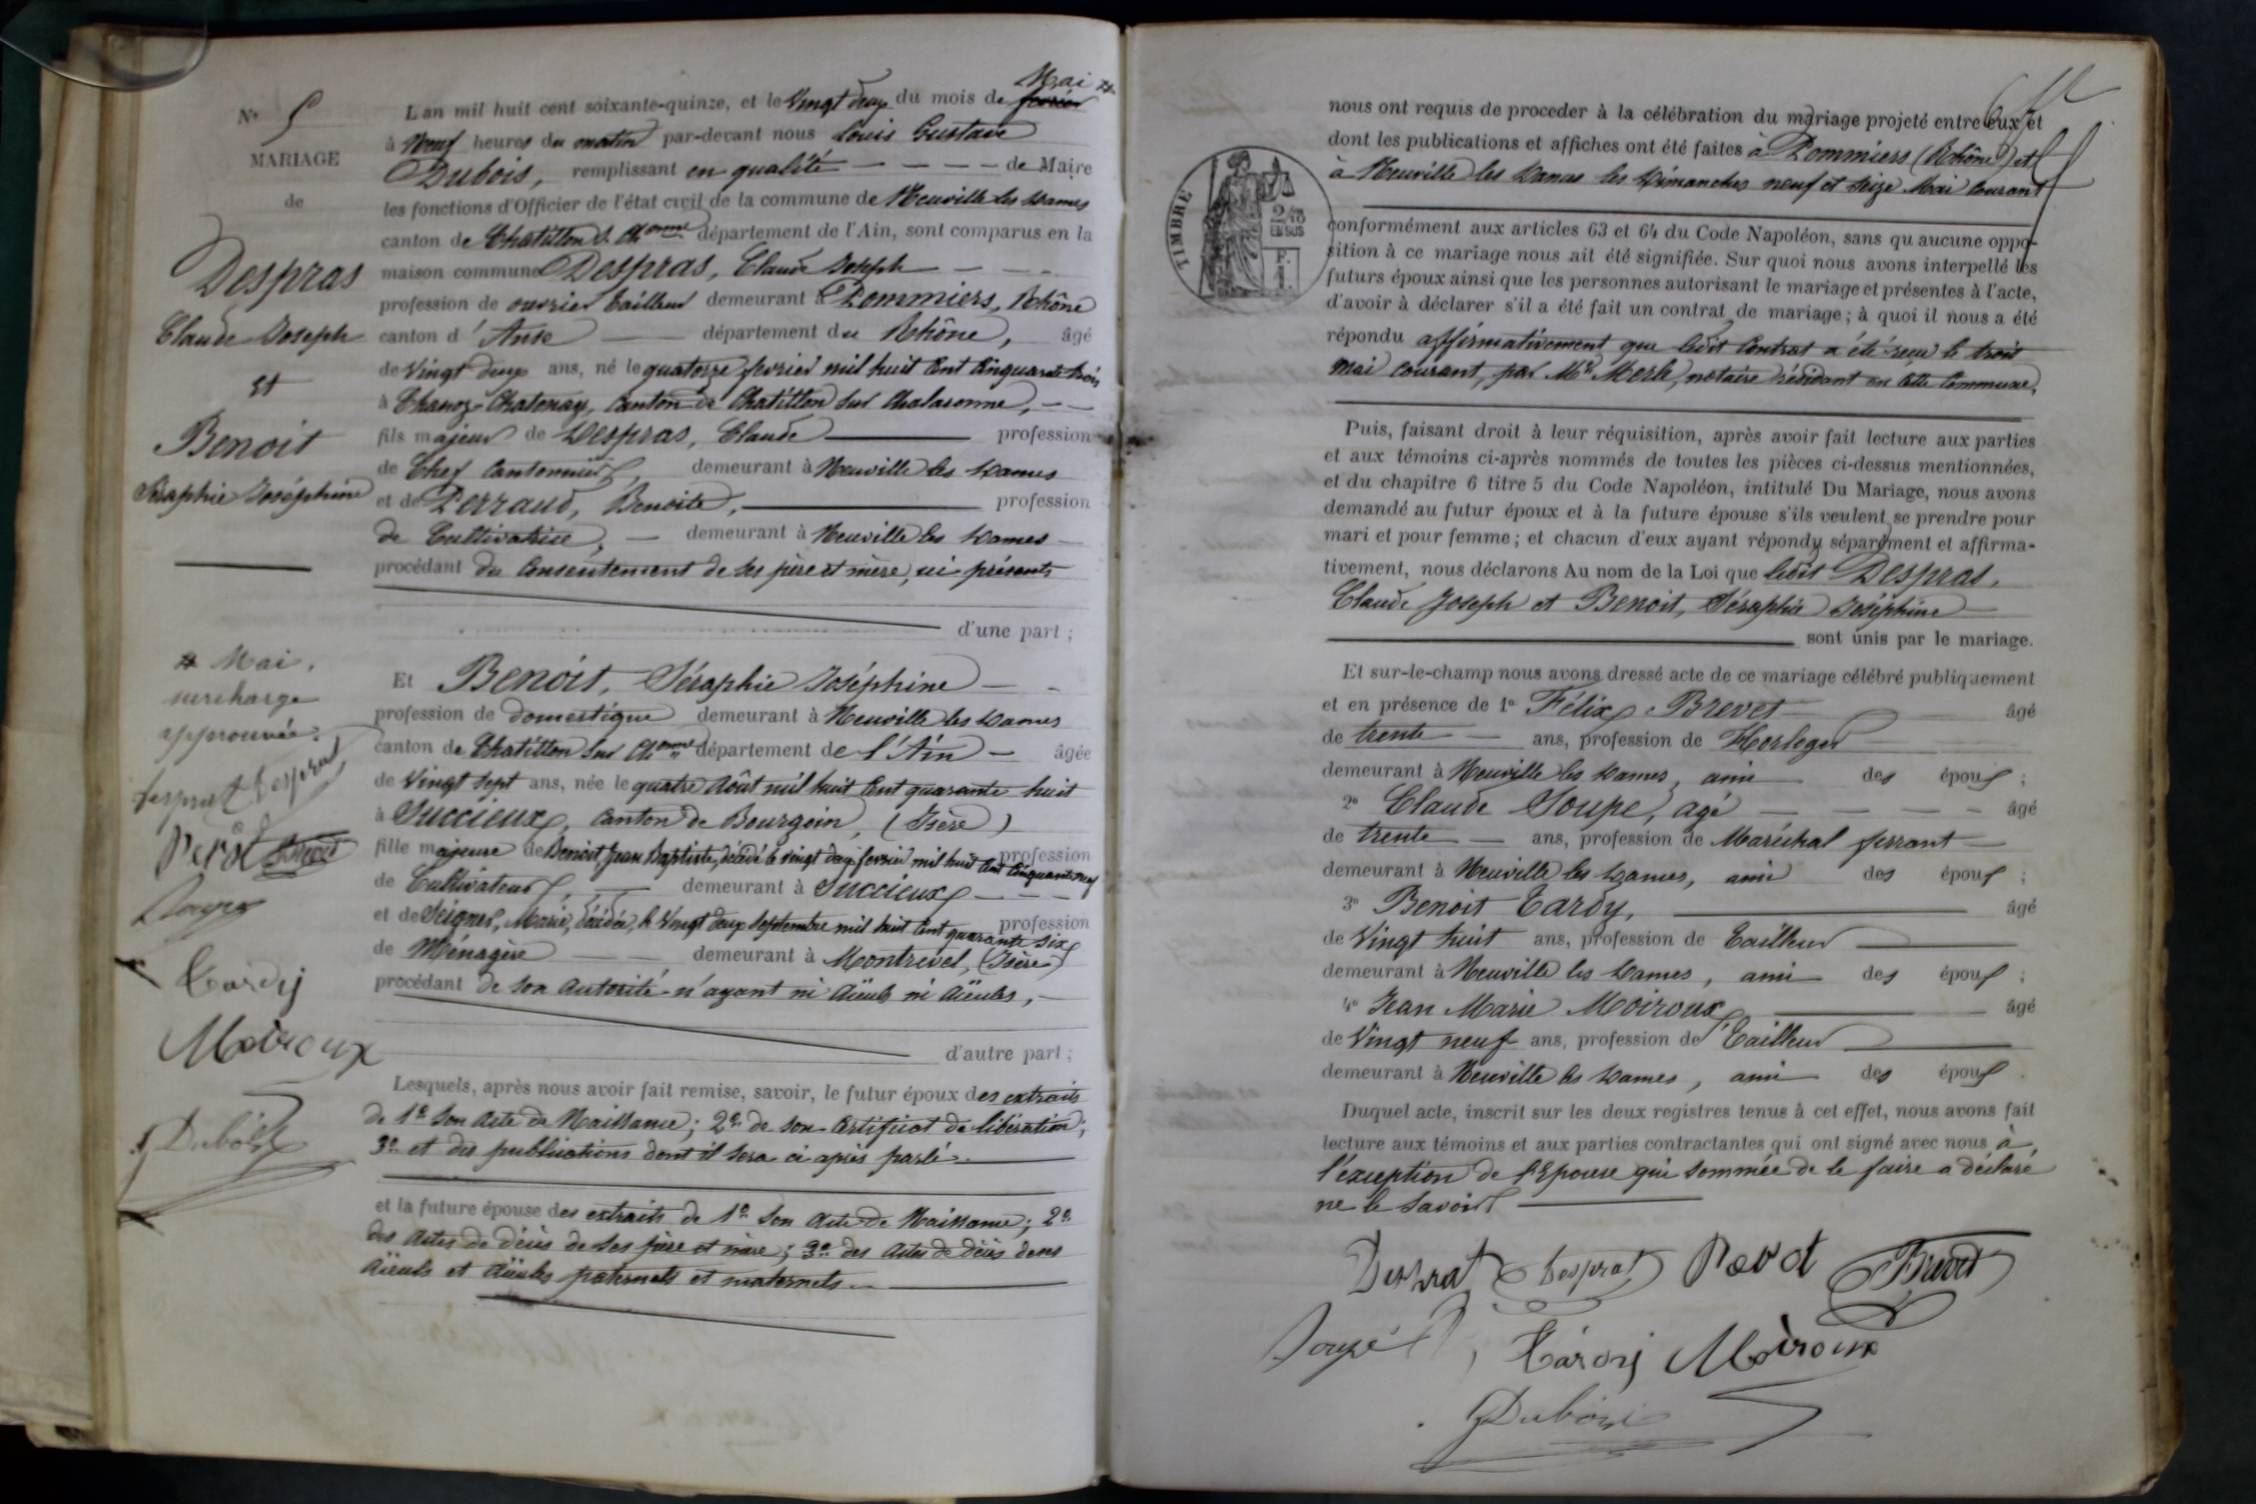 Nº 5
MARIAGE
de
Despras
Claude Joseph
et
Benoit
Séraphie Joséphine
Mai,
surcharge
approuvée.
Tardy
Moiroux
Dubois
Mai
L'an mil huit cent soixante-quinze, et le vingt deux du mois de février
à Neuf heures du matin par-devant nous Louis Gustave
Dubois, remplissant en qualité de Maire
les fonctions d'Officier de l'état civil de la commune de Neuville les Dames
canton de Chatillon s. Ch.onne département de l'Ain, sont comparus en la
maison commune Despras, Claude Joseph
profession de ouvrier tailleur demeurant à Pommiers, Rhône
canton d'Anse département du Rhône, âgé
de Vingt deux ans, né le quatorze février mil huit cent cinquante trois
à Chanoz-Chatenay, canton de Chatillon sur Chalaronne,
fils majeur de Despras, Claude profession
de Chef Cantonnier, demeurant à Neuville les Dames
et de Perraud, Benoite, profession
de Cultivatrice, demeurant à Neuville les Dames
procédant du Consentement de ses père et mère, ici présents
d'une part ;
Et Benoit, Séraphie Joséphine
profession de domestique demeurant à Neuville les Dames
canton de Chatillon sur Ch.onne département de l'Ain âgée
de Vingt sept ans, née le quatre Août mil huit cent quarante huit
à Succieux, canton de Bourgoin, (Isère)
fille majeure de Benoit Jean Baptiste, décédé le vingt deux février mil huit cent cinquante neuf profession
de Cultivateur, demeurant à Succieux
et de Seigner, Marie, décédée, le Vingt deux septembre mil huit cent quarante six profession
de Ménagère demeurant à Montrevel, (Isère)
procédant de son autorité n'ayant ni aïeuls ni aïeules,
d'autre part ;
Lesquels, après nous avoir fait remise, savoir, le futur époux des extraits
de 1º son acte de Naissance ; 2º de son Certificat de libération ;
3º et des publications dont il sera ci après parlé.
et la future épouse des extraits de 1º son acte de Naissance ; 2º
des actes de décès de ses père et mère ; 3º des actes de décès de ses
aïeuls et aïeules paternels et maternels.
TIMBRE
2/10
EN SUS
F.
1.
nous ont requis de proceder à la célébration du mariage projeté entre eux et
dont les publications et affiches ont été faites à Pommiers (Rhône) et
à Neuville les Dames les Dimanches neuf et seize Mai courant
conformément aux articles 63 et 64 du Code Napoléon, sans qu'aucune oppo-
sition à ce mariage nous ait été signifiée. Sur quoi nous avons interpellé les
futurs époux ainsi que les personnes autorisant le mariage et présentes à l'acte,
d'avoir à déclarer s'il a été fait un contrat de mariage ; à quoi il nous a été
répondu affirmativement que ledit Contrat a été reçu le trois
mai courant, par Me Merle, notaire résidant en cette Commune,
Puis, faisant droit à leur réquisition, après avoir fait lecture aux parties
et aux témoins ci-après nommés de toutes les pièces ci-dessus mentionnées,
et du chapitre 6 titre 5 du Code Napoléon, intitulé Du Mariage, nous avons
demandé au futur époux et à la future épouse s'ils veulent se prendre pour
mari et pour femme ; et chacun d'eux ayant répondu séparément et affirma-
tivement, nous déclarons Au nom de la Loi que ledit Despras,
Claude Joseph et Benoit, Séraphie Joséphine
sont unis par le mariage.
Et sur-le-champ nous avons dressé acte de ce mariage célébré publiquement
et en présence de 1º Félix Brevet âgé
de trente ans, profession de Horloger
demeurant à Neuville les Dames, ami des époux ;
2º Claude Soupe, agé âgé
de trente ans, profession de Maréchal ferrant
demeurant à Neuville les Dames, ami des époux ;
3º Benoit Tardy, âgé
de Vingt huit ans, profession de Tailleur
demeurant à Neuville les Dames, ami des époux ;
4º Jean Marie Moiroux âgé
de Vingt neuf ans, profession de Tailleur
demeurant à Neuville les Dames, ami des époux.
Duquel acte, inscrit sur les deux registres tenus à cet effet, nous avons fait
lecture aux témoins et aux parties contractantes qui ont signé avec nous à
l'exception de l'Epouse qui sommée de le faire a déclaré
ne le savoir
Desprat Desprat Brevet
Soupé Tárdy Moiroux
Dubois